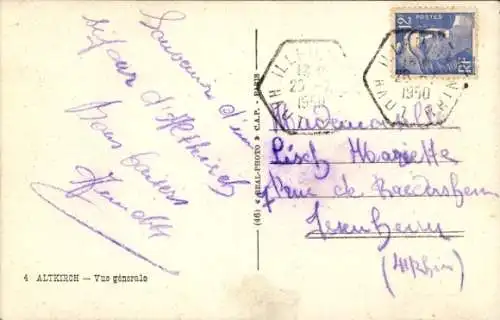 Souvenirs d'un
séjour d'Altkirch
Bons baisers
4 ALTKIRCH — Vue générale
(46) « REAL-PHOTO » C.A.P. - PARIS
12
POSTES
RF
1950
HAUT RHIN
1950
Mademoiselle
Lisch Mariette
7 rue de Raedersheim
Issenheim
(Ht Rhin)